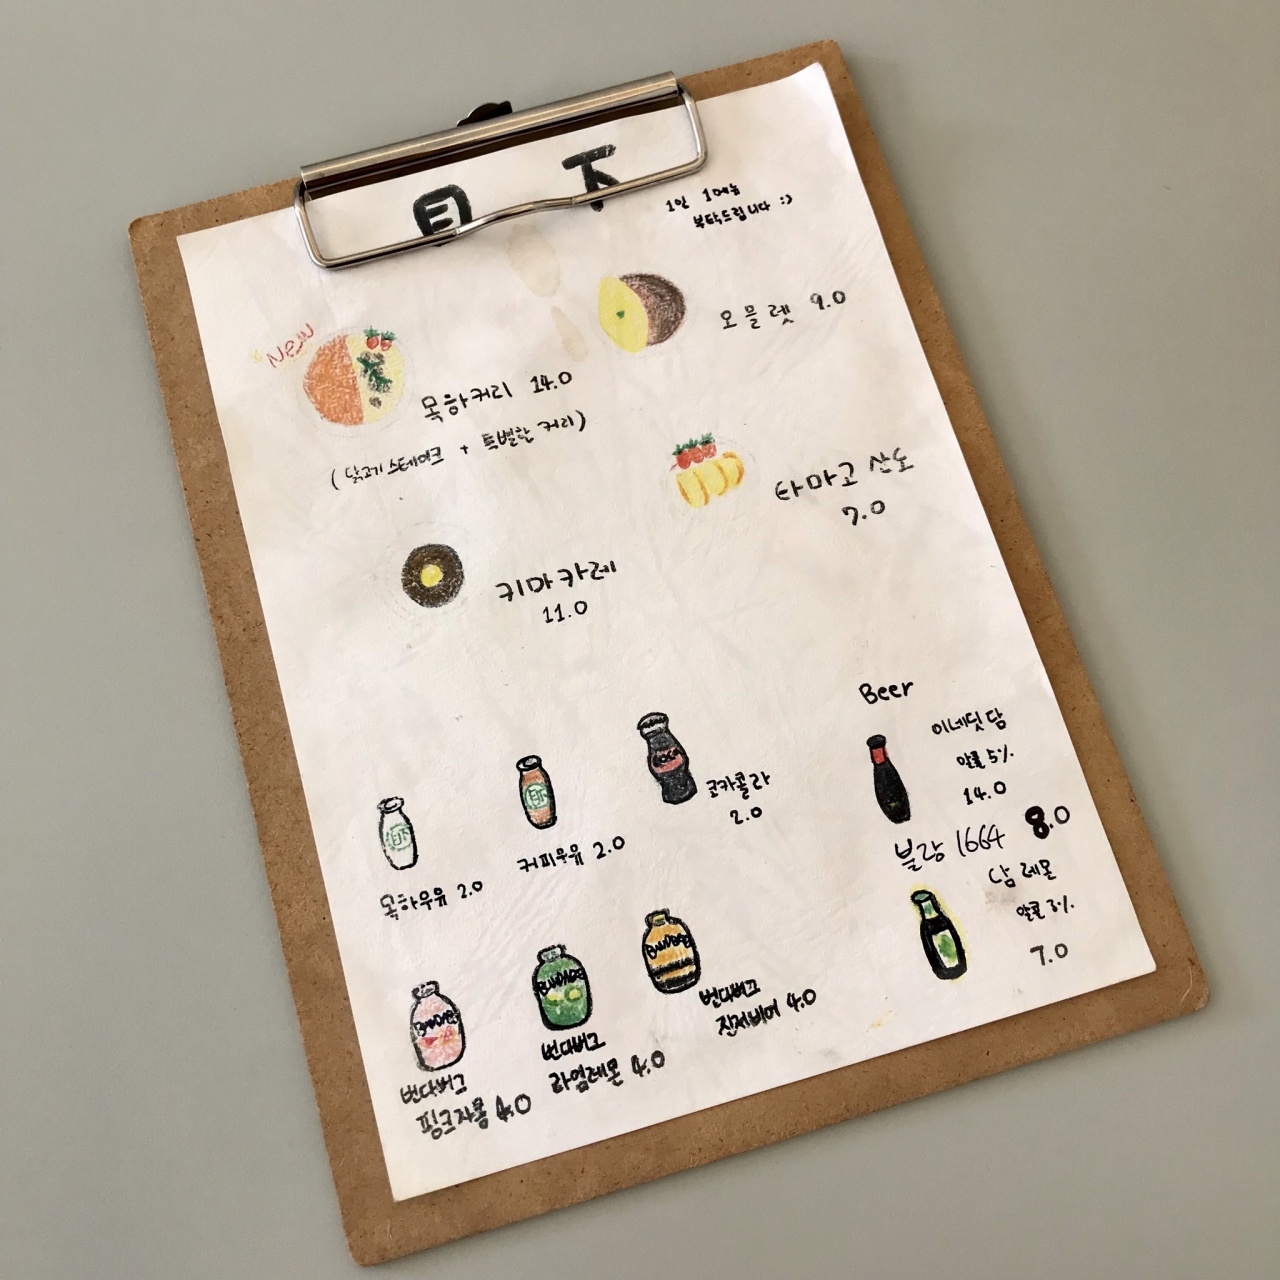 目下
1인 1메뉴
부탁드립니다 :)
New
오믈렛 9.0
목하커리 14.0
(닭고기 스테이크 + 특별한 커리)
타마고 산도
7.0
키마카레
11.0
Beer
이네딧 담
알콜 5%
14.0
블랑 1664 8.0
담 레몬
알콜 3%
7.0
코카콜라
2.0
커피우유 2.0
목하우유 2.0
번다버그
진저비어 4.0
번다버그
라임레몬 4.0
번다버그
핑크자몽 4.0